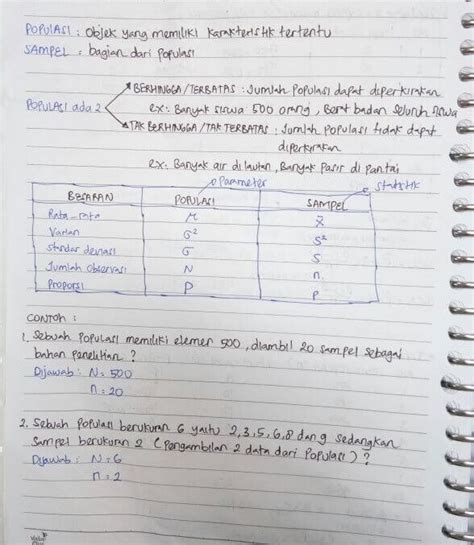 POPULASI : Objek yang memiliki karakteristik tertentu
SAMPEL : bagian dari populasi
BERHINGGA/TERBATAS : Jumlah populasi dapat diperkirakan
POPULASI ada 2
ex: Banyak siswa 500 orang, Berat badan seluruh siswa
TAK BERHINGGA/TAK TERBATAS : Jumlah populasi tidak dapat
diperkirakan
ex: Banyak air di lautan, Banyak pasir di pantai
Parameter
Statistik
BESARAN POPULASI SAMPEL
Rata-rata μ x̄
Varian σ² S²
Standar deviasi σ S
Jumlah observasi N n
Proporsi P p
CONTOH :
1. Sebuah populasi memiliki elemen 500, diambil 20 sampel sebagai
bahan penelitian ?
Dijawab : N = 500
n = 20
2. Sebuah populasi berukuran 6 yaitu 2,3,5,6,8 dan 9 sedangkan
sampel berukuran 2 (pengambilan 2 data dari populasi) ?
Dijawab : N = 6
n = 2